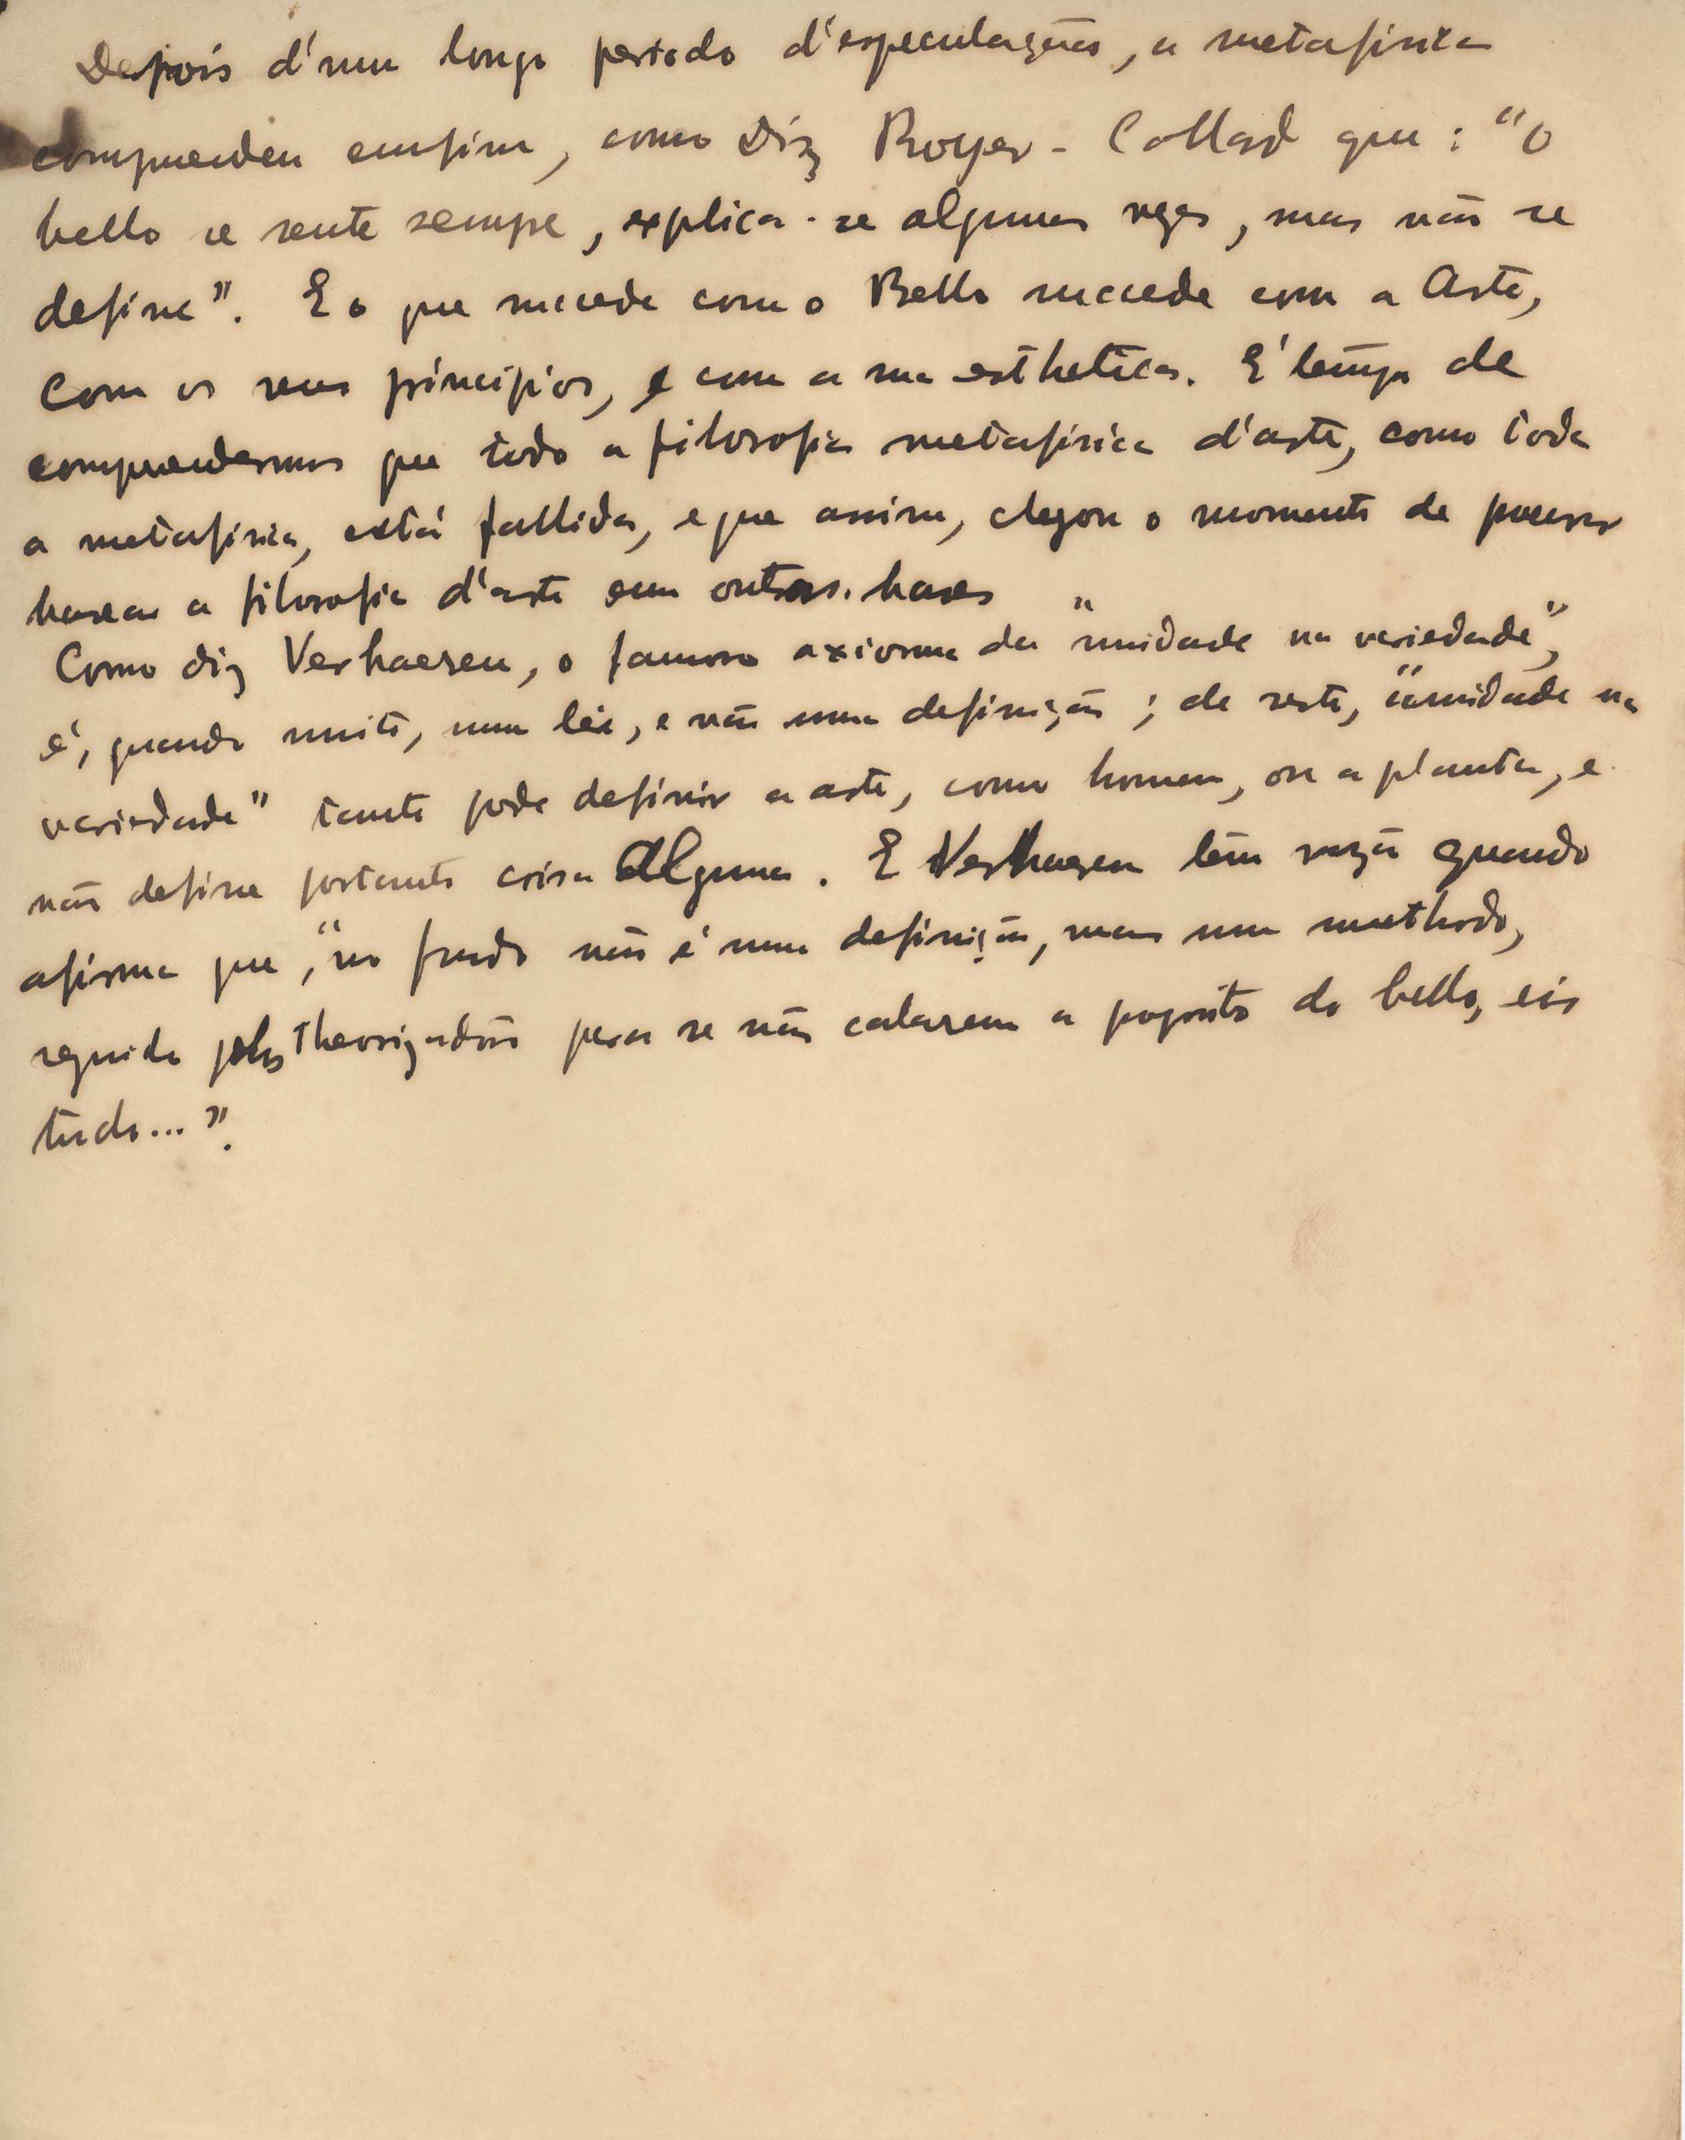 Depois d'um longo periodo d'especulações, a metafisica
comprendeu emfim, como Diz Royer-Collard que: "O
bello se sente sempre, explica-se algumas vezes, mas não se
define". E o que succede com o Bello succede com a Arte,
com os seus principios, e com a sua esthetica. E' tempo de
comprendermos que todo a filosofia metafisica d'arte, como toda
a metafisica, está fallida, e que assim, chegou o momento de
basear a filosofia d'arte em outras bases
Como diz Verhaeren, o famoso axioma da "unidade na variedade",
é, quando muito, uma lei, e não uma definição; de resto, "a unidade na
variedade" tanto pode definir a arte, como homem, ou a planta, e
não define portanto coisa Alguma. E Verhaeren tem razão quando
afirma que, "no fundo não é uma definição, mas um methodo,
seguido pelos theorizadores para se não calarem a proposito do bello, eis
tudo...".